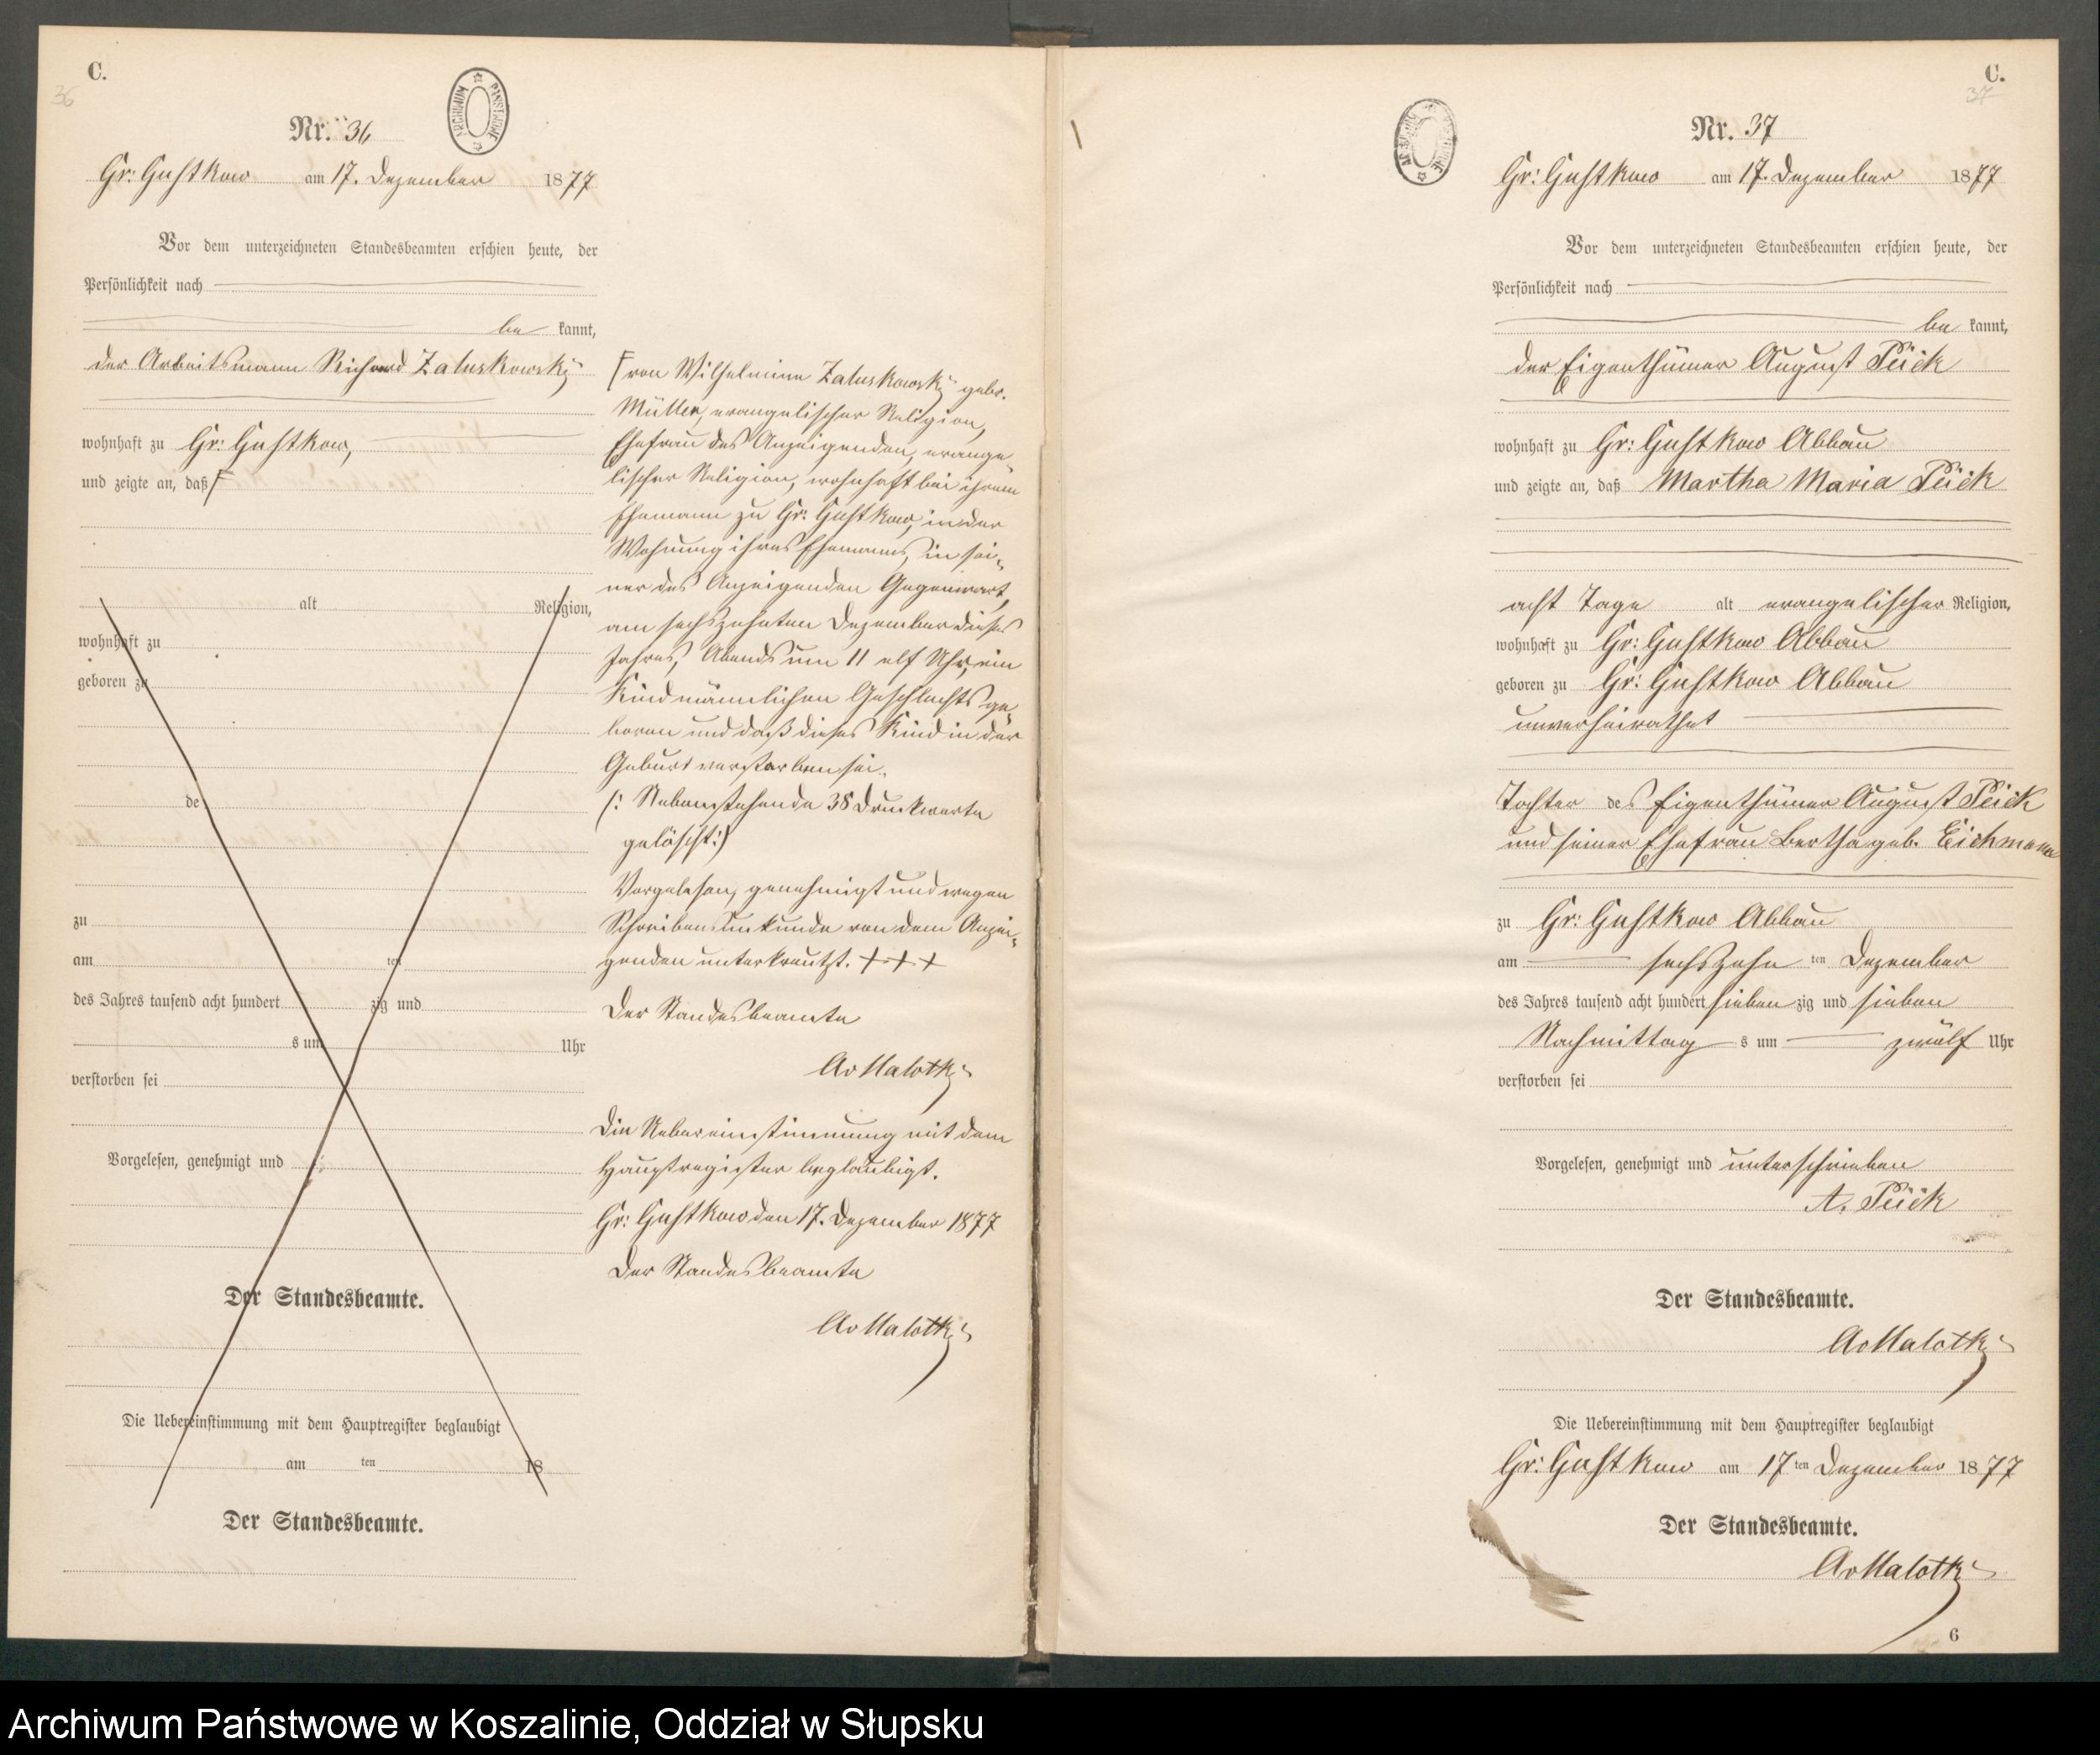 C.
36
Nr. 36
ARCHIWUM PAŃSTWOWE
Gr: Gustkow am 17. Dezember 1877
Vor dem unterzeichneten Standesbeamten erschien heute, der
Persönlichkeit nach
be kannt,
der Arbeitsmann Richard Zaluskowsky
wohnhaft zu Gr: Gustkow,
und zeigte an, daß F
alt Religion,
wohnhaft zu
geboren zu
de
zu
am ten
des Jahres tausend acht hundert zig und
s um Uhr
verstorben sei
Vorgelesen, genehmigt und
Der Standesbeamte.
Die Uebereinstimmung mit dem Hauptregister beglaubigt
am ten 18
Der Standesbeamte.
F von Wilhelmine Zaluskowsky gebr.
Müller, evangelischer Religion,
Ehefrau des Anzeigenden, evange-
lischer Religion, wohnhaft bei ihrem
Ehemann zu Gr: Gustkow, in der
Wohnung ihres Ehemanns, in sei-
ner des Anzeigenden Gegenwart,
am sechszehnten Dezember dieses
Jahres, Abends um 11 elf Uhr, ein
Kind männlichen Geschlechts ge-
boren und daß dieses Kind in der
Geburt verstorben sei.
(: Nebenstehende 38 Druckworte
gelöscht :)
Vorgelesen, genehmigt und wegen
Schreibensunkunde von dem Anzei-
genden unterkreutzt. + + +
Der Standesbeamte
AvMalotki
Die Uebereinstimmung mit dem
Hauptregister beglaubigt.
Gr: Gustkow den 17. Dezember 1877
Der Standesbeamte
AvMalotki
C.
37
Nr. 37
Gr: Gustkow am 17. Dezember 1877
Vor dem unterzeichneten Standesbeamten erschien heute, der
Persönlichkeit nach
be kannt,
der Eigenthümer August Peick
wohnhaft zu Gr: Gustkow Abbau
und zeigte an, daß Martha Maria Peick
acht Tage alt evangelischer Religion,
wohnhaft zu Gr: Gustkow Abbau
geboren zu Gr: Gustkow Abbau
unverheirathet
Tochter des Eigenthümer August Peick
und seiner Ehefrau Bertha geb. Eichmann
zu Gr: Gustkow Abbau
am sechszehn ten Dezember
des Jahres tausend acht hundert sieben zig und sieben
Nachmittag s um zwölf Uhr
verstorben sei
Vorgelesen, genehmigt und unterschrieben
A. Peick
Der Standesbeamte.
AvMalotki
Die Uebereinstimmung mit dem Hauptregister beglaubigt
Gr: Gustkow am 17 ten Dezember 1877
Der Standesbeamte.
AvMalotki
6
Archiwum Państwowe w Koszalinie, Oddział w Słupsku